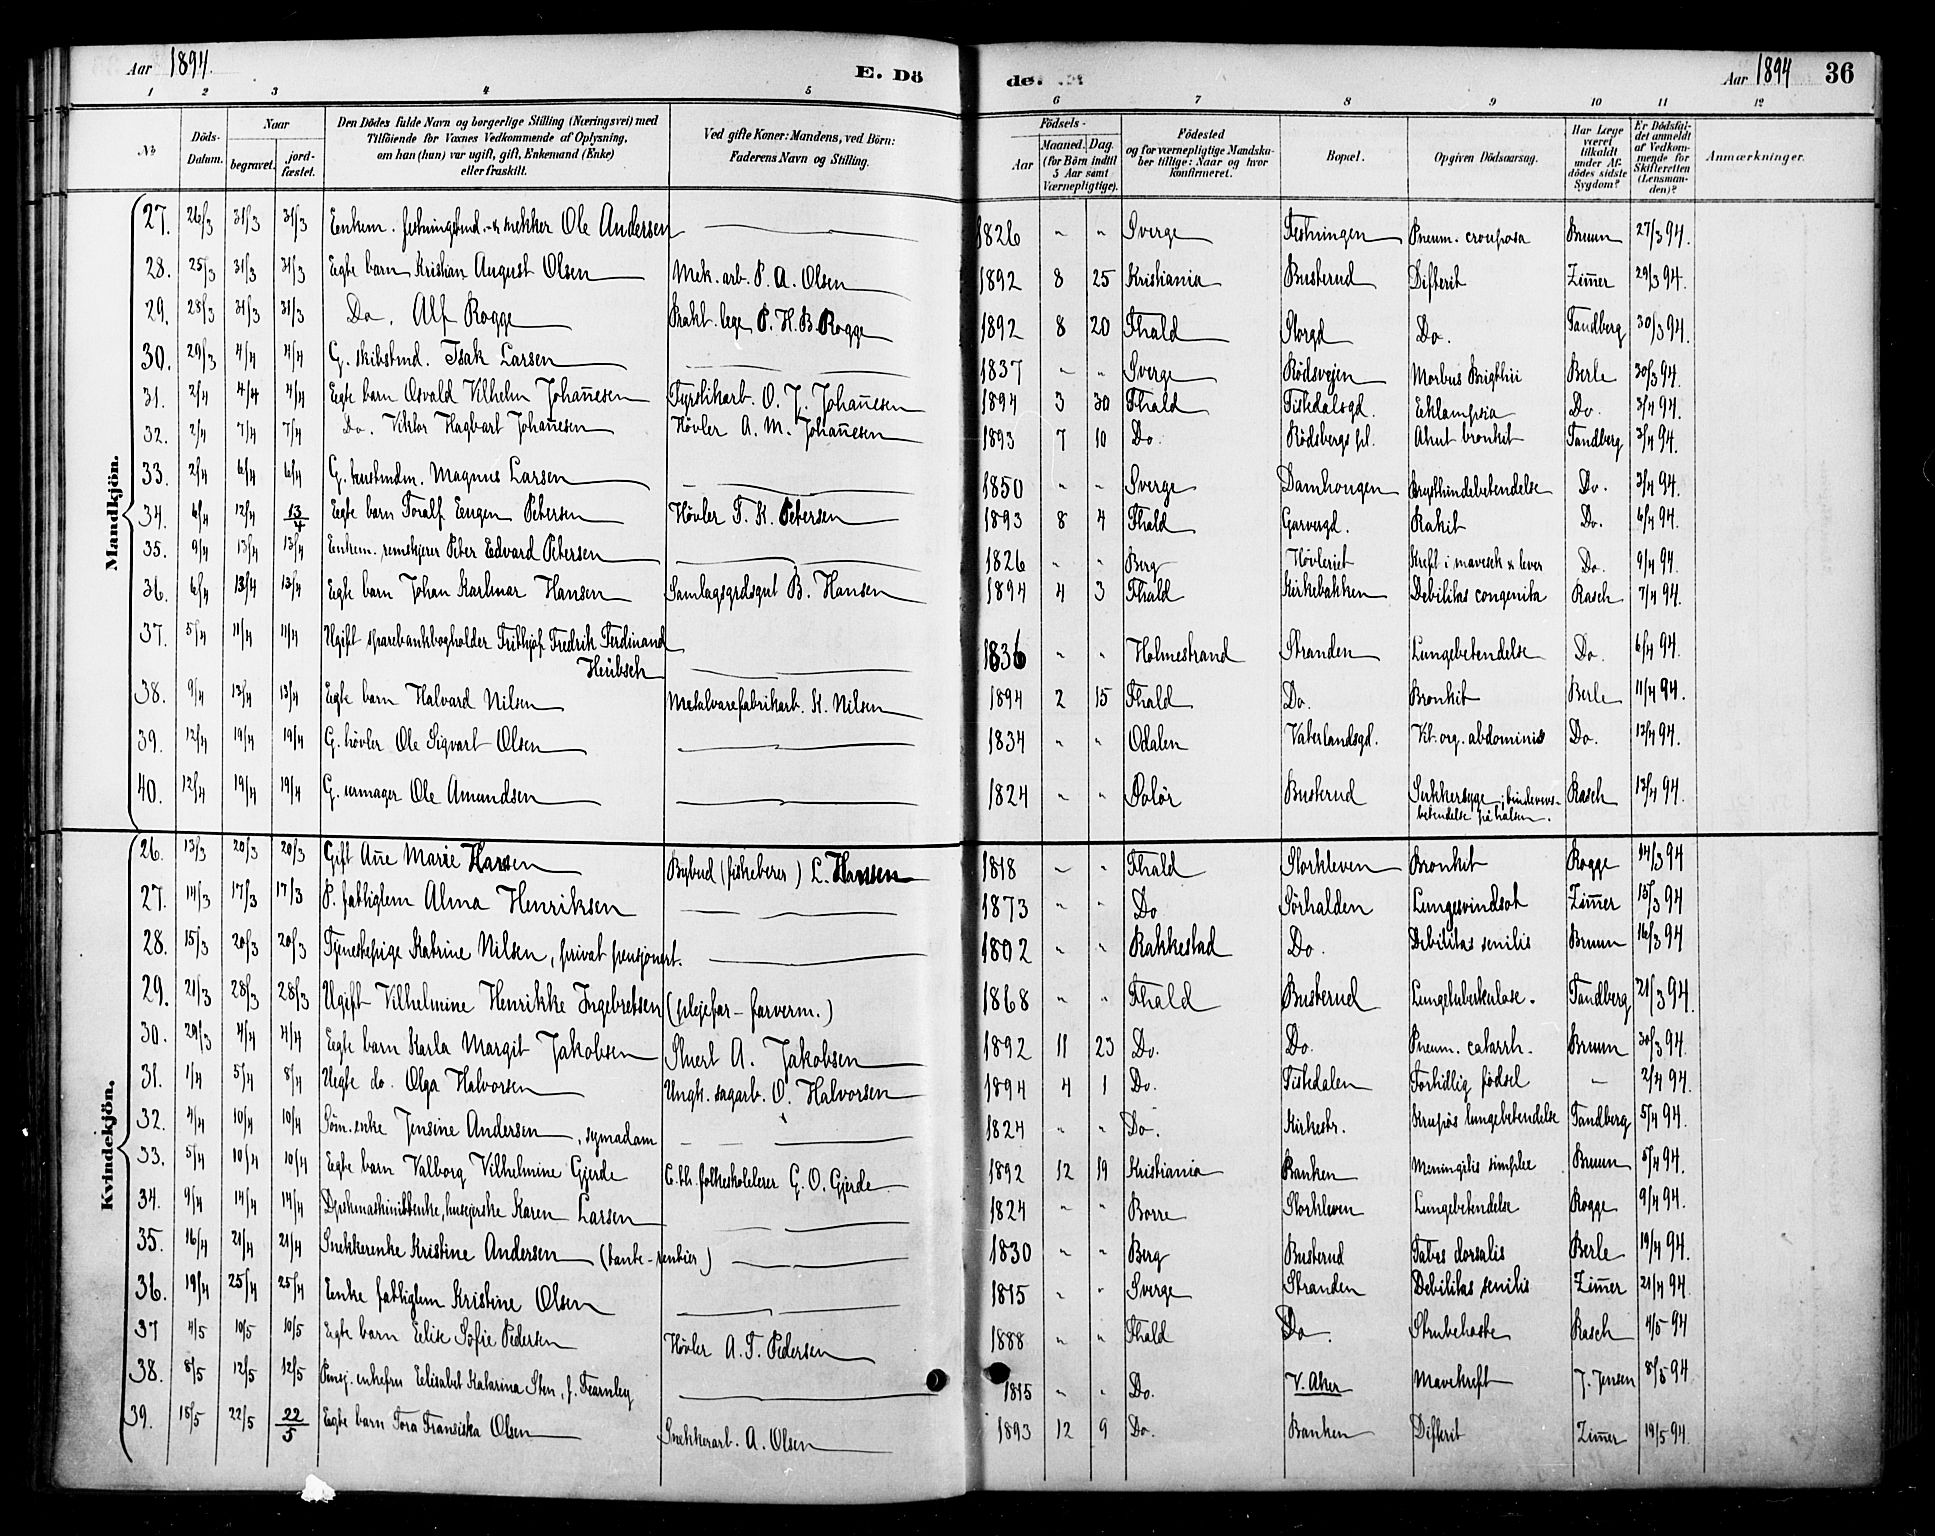 Aar 1894. E. Dö
de. Aar 1894 36
1 2 3 4 5 6 7 8 9 10 11 12
No Döds-Datum. Naar begravet. jord-fæstet. Den Dödes fulde Navn og borgerlige Stilling (Næringsvei) med Tilföiende for Voxnes Vedkommende af Oplysning, om han (hun) var ugift, gift, Enkemand (Enke) eller fraskilt. Ved gifte Koner: Mandens, ved Börn: Faderens Navn og Stilling. Födsels- Aar Maaned. Dag. (for Börn indtil 5 Aar samt Værnepligtige). Födested og for værnepligtige Mandskaber tillige: Naar og hvor konfirmeret. Bopæl. Opgiven Dödsaarsag. Har Læge været tilkaldt under Afdödes sidste Sygdom? Er Dödsfaldet anmeldt af Vedkommende for Skifteretten (Lensmanden)? Anmærkninger.
Mandkjön.
27. 26/3 31/3 31/3 Enkem. festningsbud. & snekker Ole Andersen 1826 " " Sverge Festningen Pneum. crouposa Bruun 27/3 94.
28. 25/3 31/3 31/3 Egte barn Kristian August Olsen Mek. arb. P. A. Olsen 1892 8 25 Kristiania Busterud Difterit Zimer 29/3 94.
29. 28/3 31/3 31/3 Do. Alf Rogge Prakt. lege P. H. B. Rogge 1892 8 20 Fhald Storgd Do. Tandberg 30/3 94.
30. 29/3 4/4 4/4 G. skibstmd. Isak Larsen 1837 " " Sverge Rödsvejen Morbus Brigthii Berle 30/3 94.
31. 2/4 4/4 4/4 Egte barn Osvald Vilhelm Johanesen Fyrstikarb. O. J. Johanesen 1894 3 30 Fhald Tistedalsgd. Eklampsia Do. 3/4 94.
32. 2/4 7/4 7/4 Do. Viktor Hagbart Johanesen Hövler A. M. Johanesen 1893 7 10 Do. Rödsbergs pl. Akut bronkit Tandberg 3/4 94.
33. 2/4 6/4 6/4 G. Magnus Larsen 1850 " " Sverge Damhougen Brysthindebetendelse Do. 3/4 94.
34. 6/4 12/4 13/4 Egte barn Toralf Eugen Petersen Hövler T. K. Petersen 1893 8 4 Fhald Garvergd. Rakit Do. 6/4 94.
35. 9/4 13/4 13/4 Enkem. remskjerer Peter Edvard Petersen 1826 " " Berg Hövleriet Kreft i mavesek & lever Do. 9/4 94.
36. 6/4 13/4 13/4 Egte barn Johan Karlmar Hansen Samlagsgrdsgut B. Hansen 1894 4 3 Fhald Kirkebakken Debilitas congenita Rasch 7/4 94.
37. 5/4 11/4 11/4 Ugift sparebankbogholder Frithjof Fredrik Ferdinand
Heübsch 1836 " " Holmestrand Stranden Lungebetendelse Do. 6/4 94.
38. 9/4 13/4 13/4 Egte barn Halvard Nilsen Metalvarefabrikarb. K. Nilsen 1894 2 15 Fhald Do. Bronkit Berle 11/4 94.
39. 12/4 19/4 19/4 G. hövler Ole Sigvart Olsen 1834 " " Odalen Vaterlandsgd. Vit. org. abdominis Do. 13/4 94.
40. 12/4 19/4 19/4 G. urmager Ole Amundsen 1824 " " Solör Busterud Sukkersyge; bindevevs-
betendelse på halsen. Rasch 13/4 94.
Kvindekjön.
26. 13/3 20/3 20/3 Gift Ane Marie Hansen Bybud (fiskeberer) L. Hansen 1818 " " Fhald Storkleven Bronkit Rogge 14/3 94
27. 14/3 17/3 17/3 P. fattiglem Alma Henriksen 1873 " " Do Sörhalden Lungesvindsot Zimer 15/3 94
28. 15/3 20/3 20/3 Tjenestepige Katrine Nilsen, privat pensjonert. 1802 " " Rakkestad Do. Debilitas senilis Bruun 16/3 94
29. 21/3 28/3 28/3 Ugift Vilhelmine Henrikke Ingebretsen (plejefar - farverm.) 1868 " " Fhald Busterud Lungetuberkulose. Tandberg 21/3 94.
30. 29/3 4/4 4/4 Egte barn Karla Margit Jakobsen Stuert A. Jakobsen 1892 11 23 Do. Do. Pneum. catarrh. Bruun 30/3 94.
31. 1/4 5/4 8/4 Uegte do. Olga Halvorsen Ungk. sagarb. O. Halvorsen 1894 4 1 Do. Tistedalen Fortidlig födsel — 2/4 94.
32. 4/4 10/4 10/4 Söm. enke Jensine Andersen, symadam 1824 " " Do. Kirkestr. Krupös lungebetendelse Tandberg 5/4 94.
33. 5/4 10/4 10/4 Egte barn Valborg Vilhelmine Gjerde C. th. folkeskolelerer G. O. Gjerde 1892 12 19 Kristiania Banken Meningitis simplex Bruun 5/4 94.
34. 9/4 14/4 14/4 Dyrskmaskinistenke, husejerske Karen Larsen 1824 " " Borre Storkleven Lungebetendelse Rogge 9/4 94.
35. 16/4 21/4 21/4 Snekkerenke Kristine Andersen (tante - rentier) 1830 " " Berg Busterud Tabes dorsalis Berle 19/4 94.
36. 19/4 25/4 25/4 Enke fattiglem Kristine Olsen 1815 " " Sverge Stranden Debilitas senilis Zimer 21/4 94.
37 4/5 10/5 10/5 Egte barn Elise Sofie Pedersen Hövler A. T. Pedersen 1888 " " Fhald Do. Strubehoste Rasch 4/5 94
38. 8/5 12/5 12/5 Pensj. enkefru Elisabet Katarina Sten, f. Fearnley 1815 " " Do. V. Aker Mavekreft J. Jensen 8/5 94.
39. 18/5 22/5 22/5 Egte barn Tora Fransiska Olsen Snekkerarb. A. Olsen 1893 12 9 Do. Banken Difterit Zimer 19/5 94.